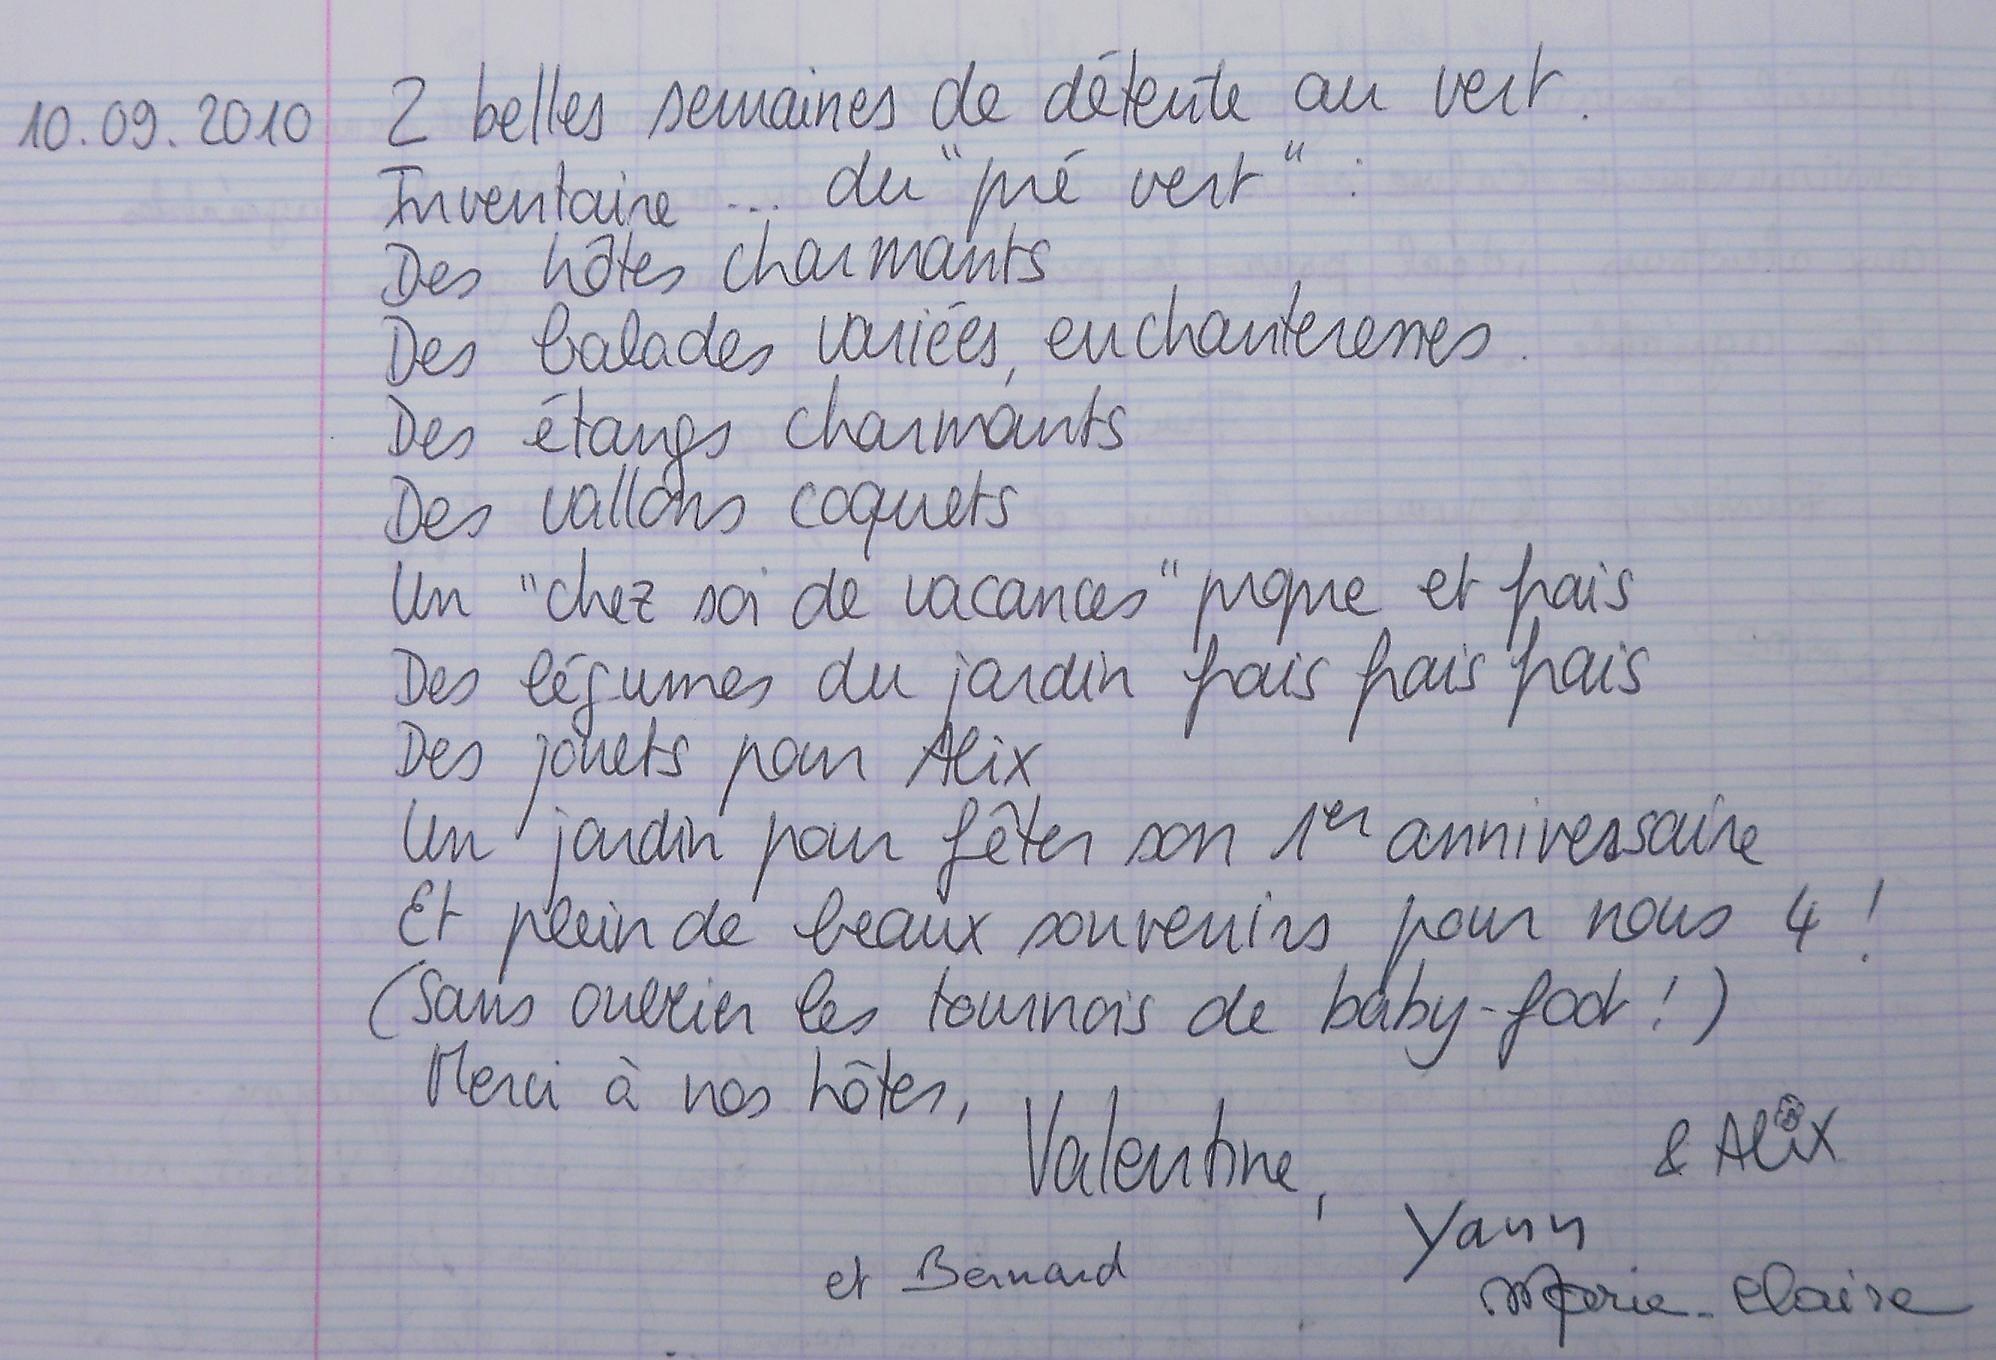 10.09.2010 2 belles semaines de détente au vert.
Inventaire ... du "pré vert" :
Des hôtes charmants
Des balades variées, enchanteresses.
Des étangs charmants
Des vallons coquets
Un "chez soi de vacances" propre et frais
Des légumes du jardin frais frais frais
Des jouets pour Alix
Un jardin pour fêter son 1er anniversaire
Et plein de beaux souvenirs pour nous 4 !
(Sans oublier les tournois de baby-foot !)
Merci à nos hôtes,
Valentine,
& Alix
Yann
et Bernard
Marie-Claire